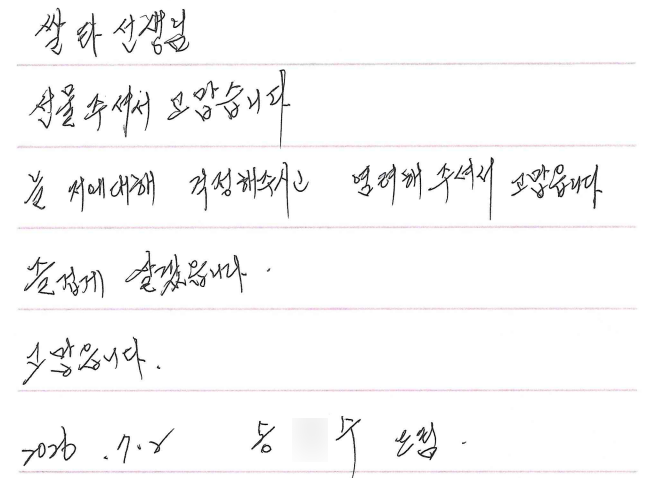 쌀 타 선생님
선물 주셔서 고맙습니다
늘 저에대해 걱정해주시고 염려해 주셔서 고맙습니다
즐겁게 살겠습니다.
고맙습니다.
2026.7.2 동 수 드림.